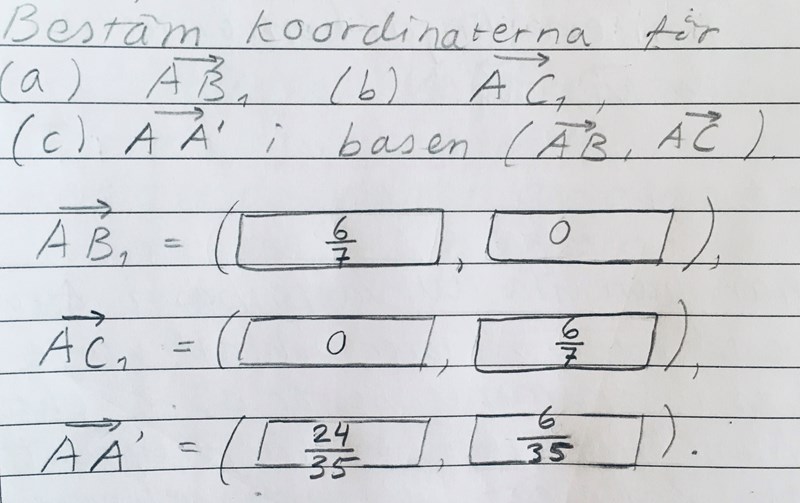 Bestäm koordinaterna för
(a) AB₁ (b) AC₁,
(c) AA' i basen (AB, AC).
AB₁ = (6/7, 0),
AC₁ = (0, 6/7),
AA' = (24/35, 6/35).